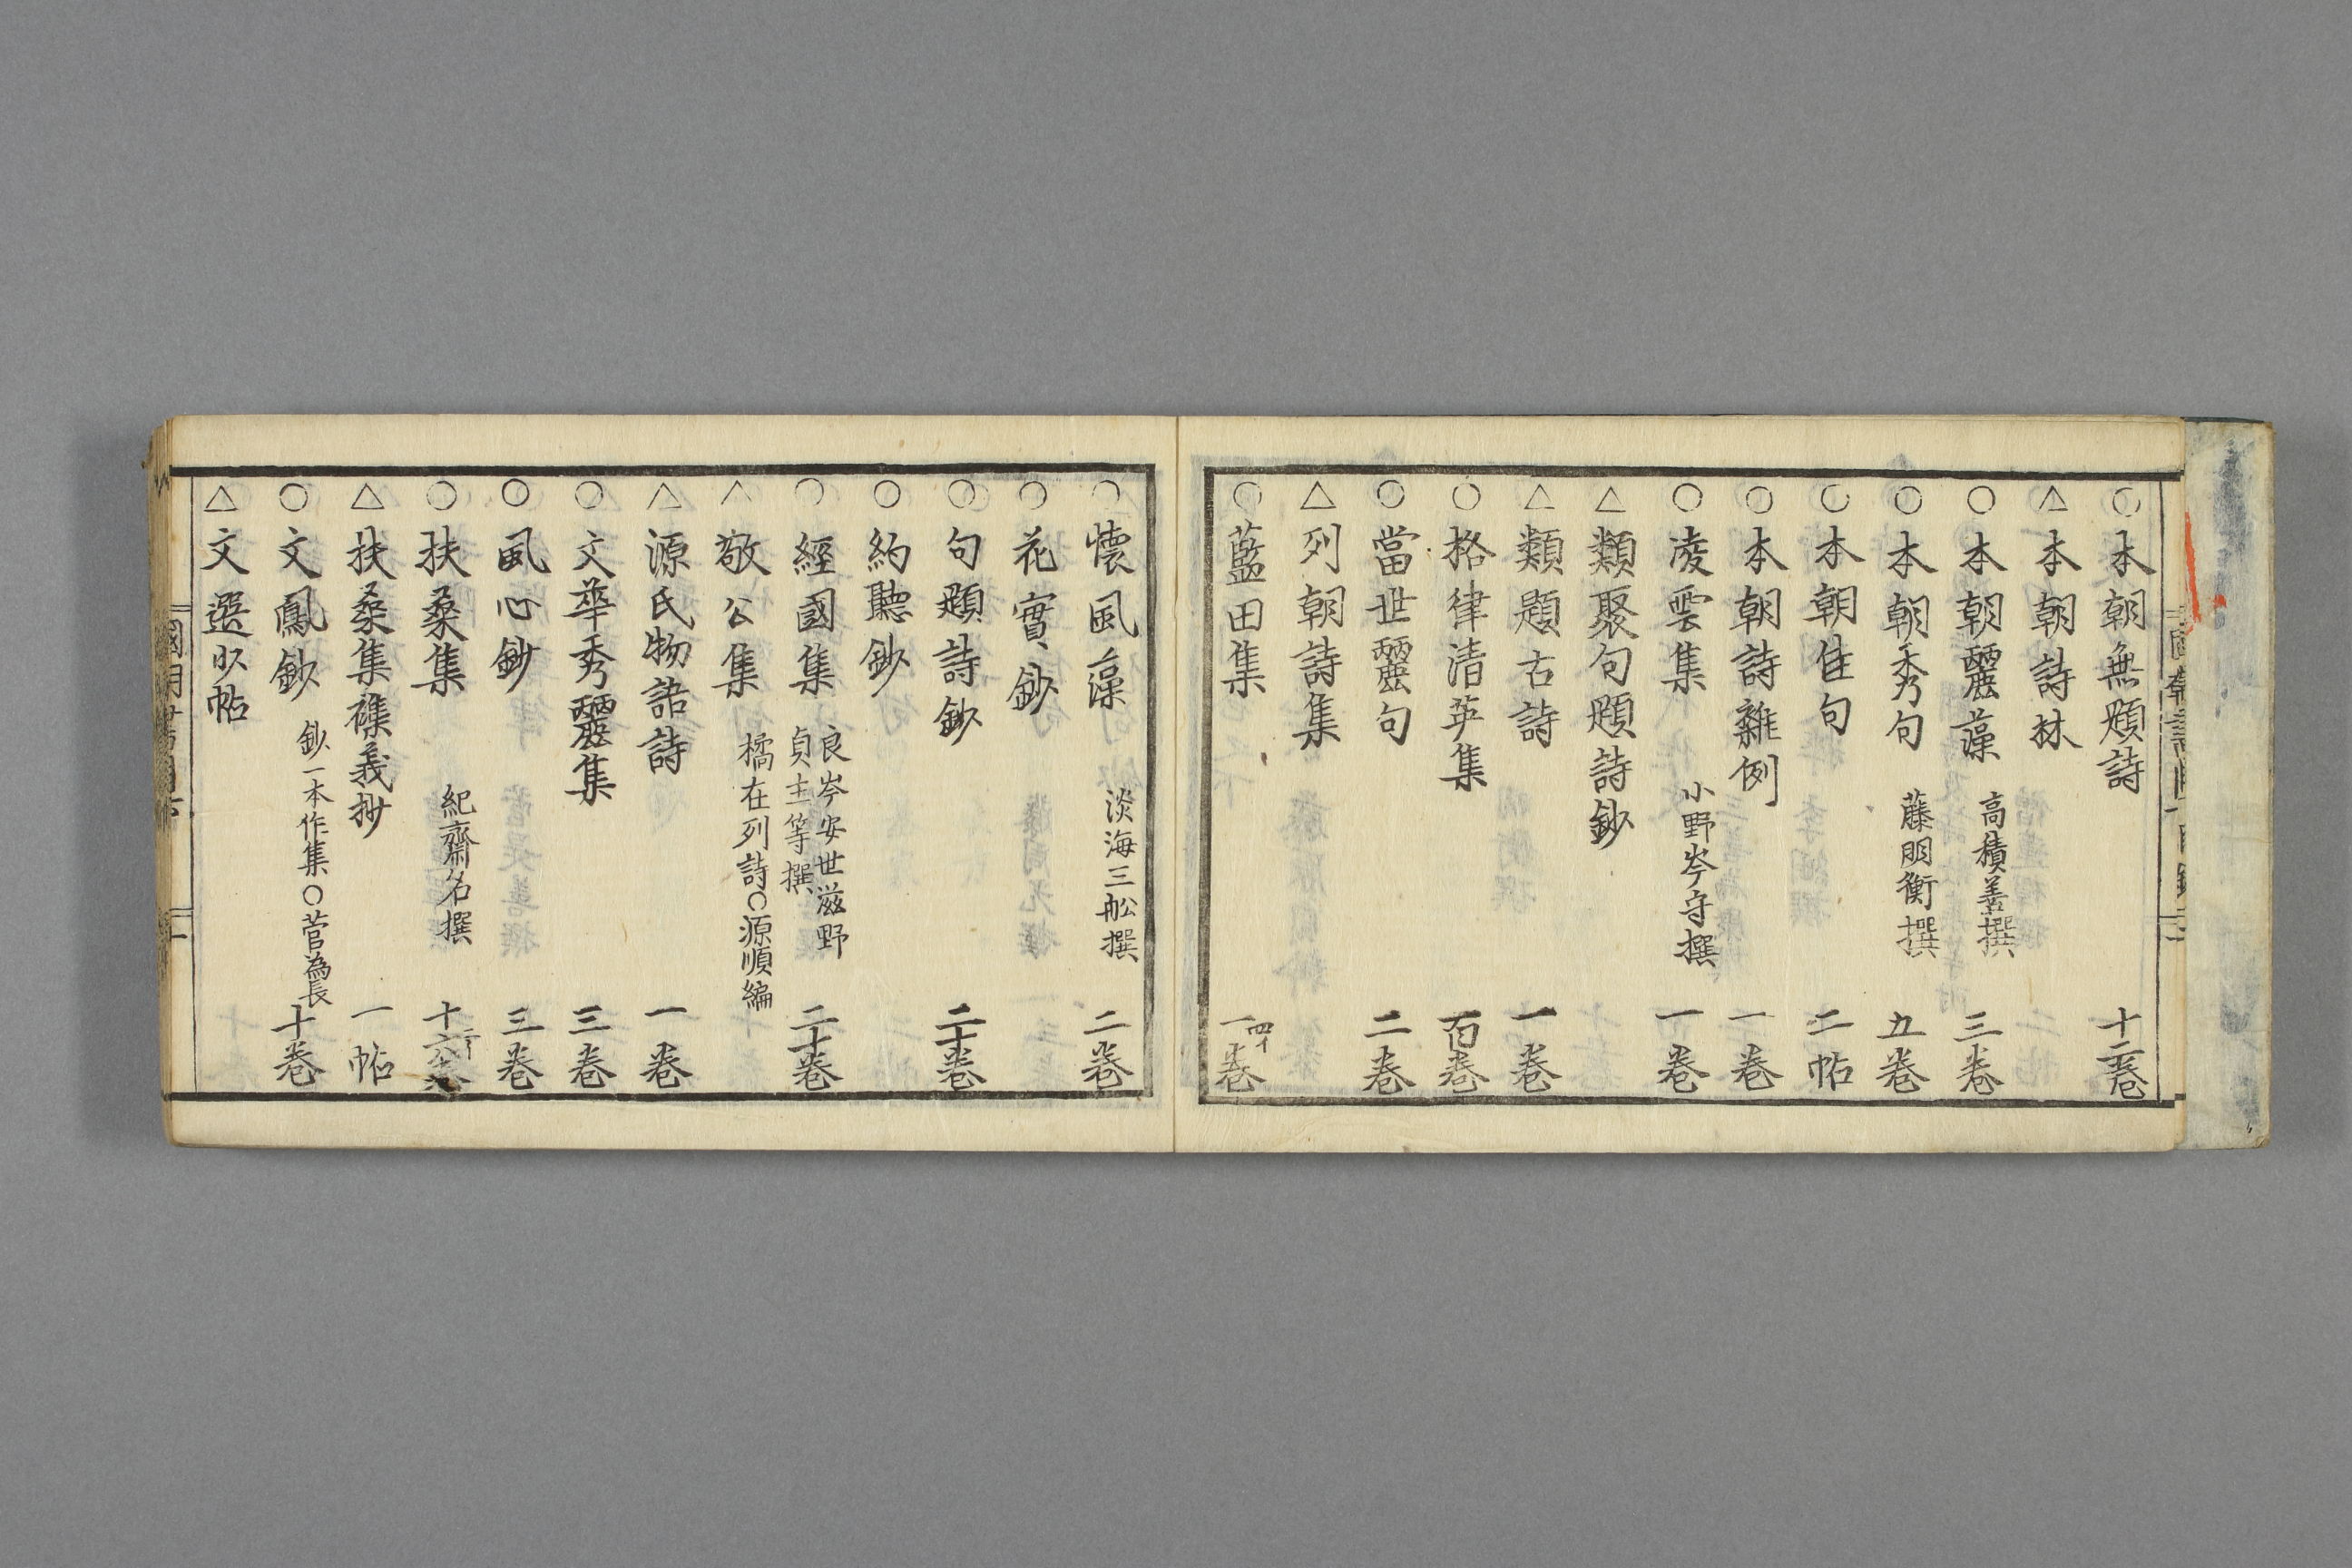 ○本朝無題詩 十二卷
△本朝詩林
○本朝麗藻 高積善撰 三卷
○本朝秀句 藤明衡撰 五卷
○本朝佳句 二帖
○本朝詩雜例 一卷
○凌雲集 小野岑守撰 一卷
△類聚句題詩鈔
△類題古詩 一卷
○格律清英集 一百卷
○當世麗句 二卷
△列朝詩集
○藍田集 一卷 四イ
○懷風藻 淡海三舩撰 二卷
○花實鈔
○句題詩鈔 二十卷
○約聽鈔
○經國集 良岑安世滋野貞主等撰 二十卷
△敬公集 橘在列詩○源順編
△源氏物語詩 一卷
○文華秀麗集 三卷
○風心鈔 三卷
○扶桑集 紀齋名撰 十六卷
△扶桑集襍義抄 一帖
○文鳳鈔 鈔一本作集○菅為長 十卷
△文選少帖